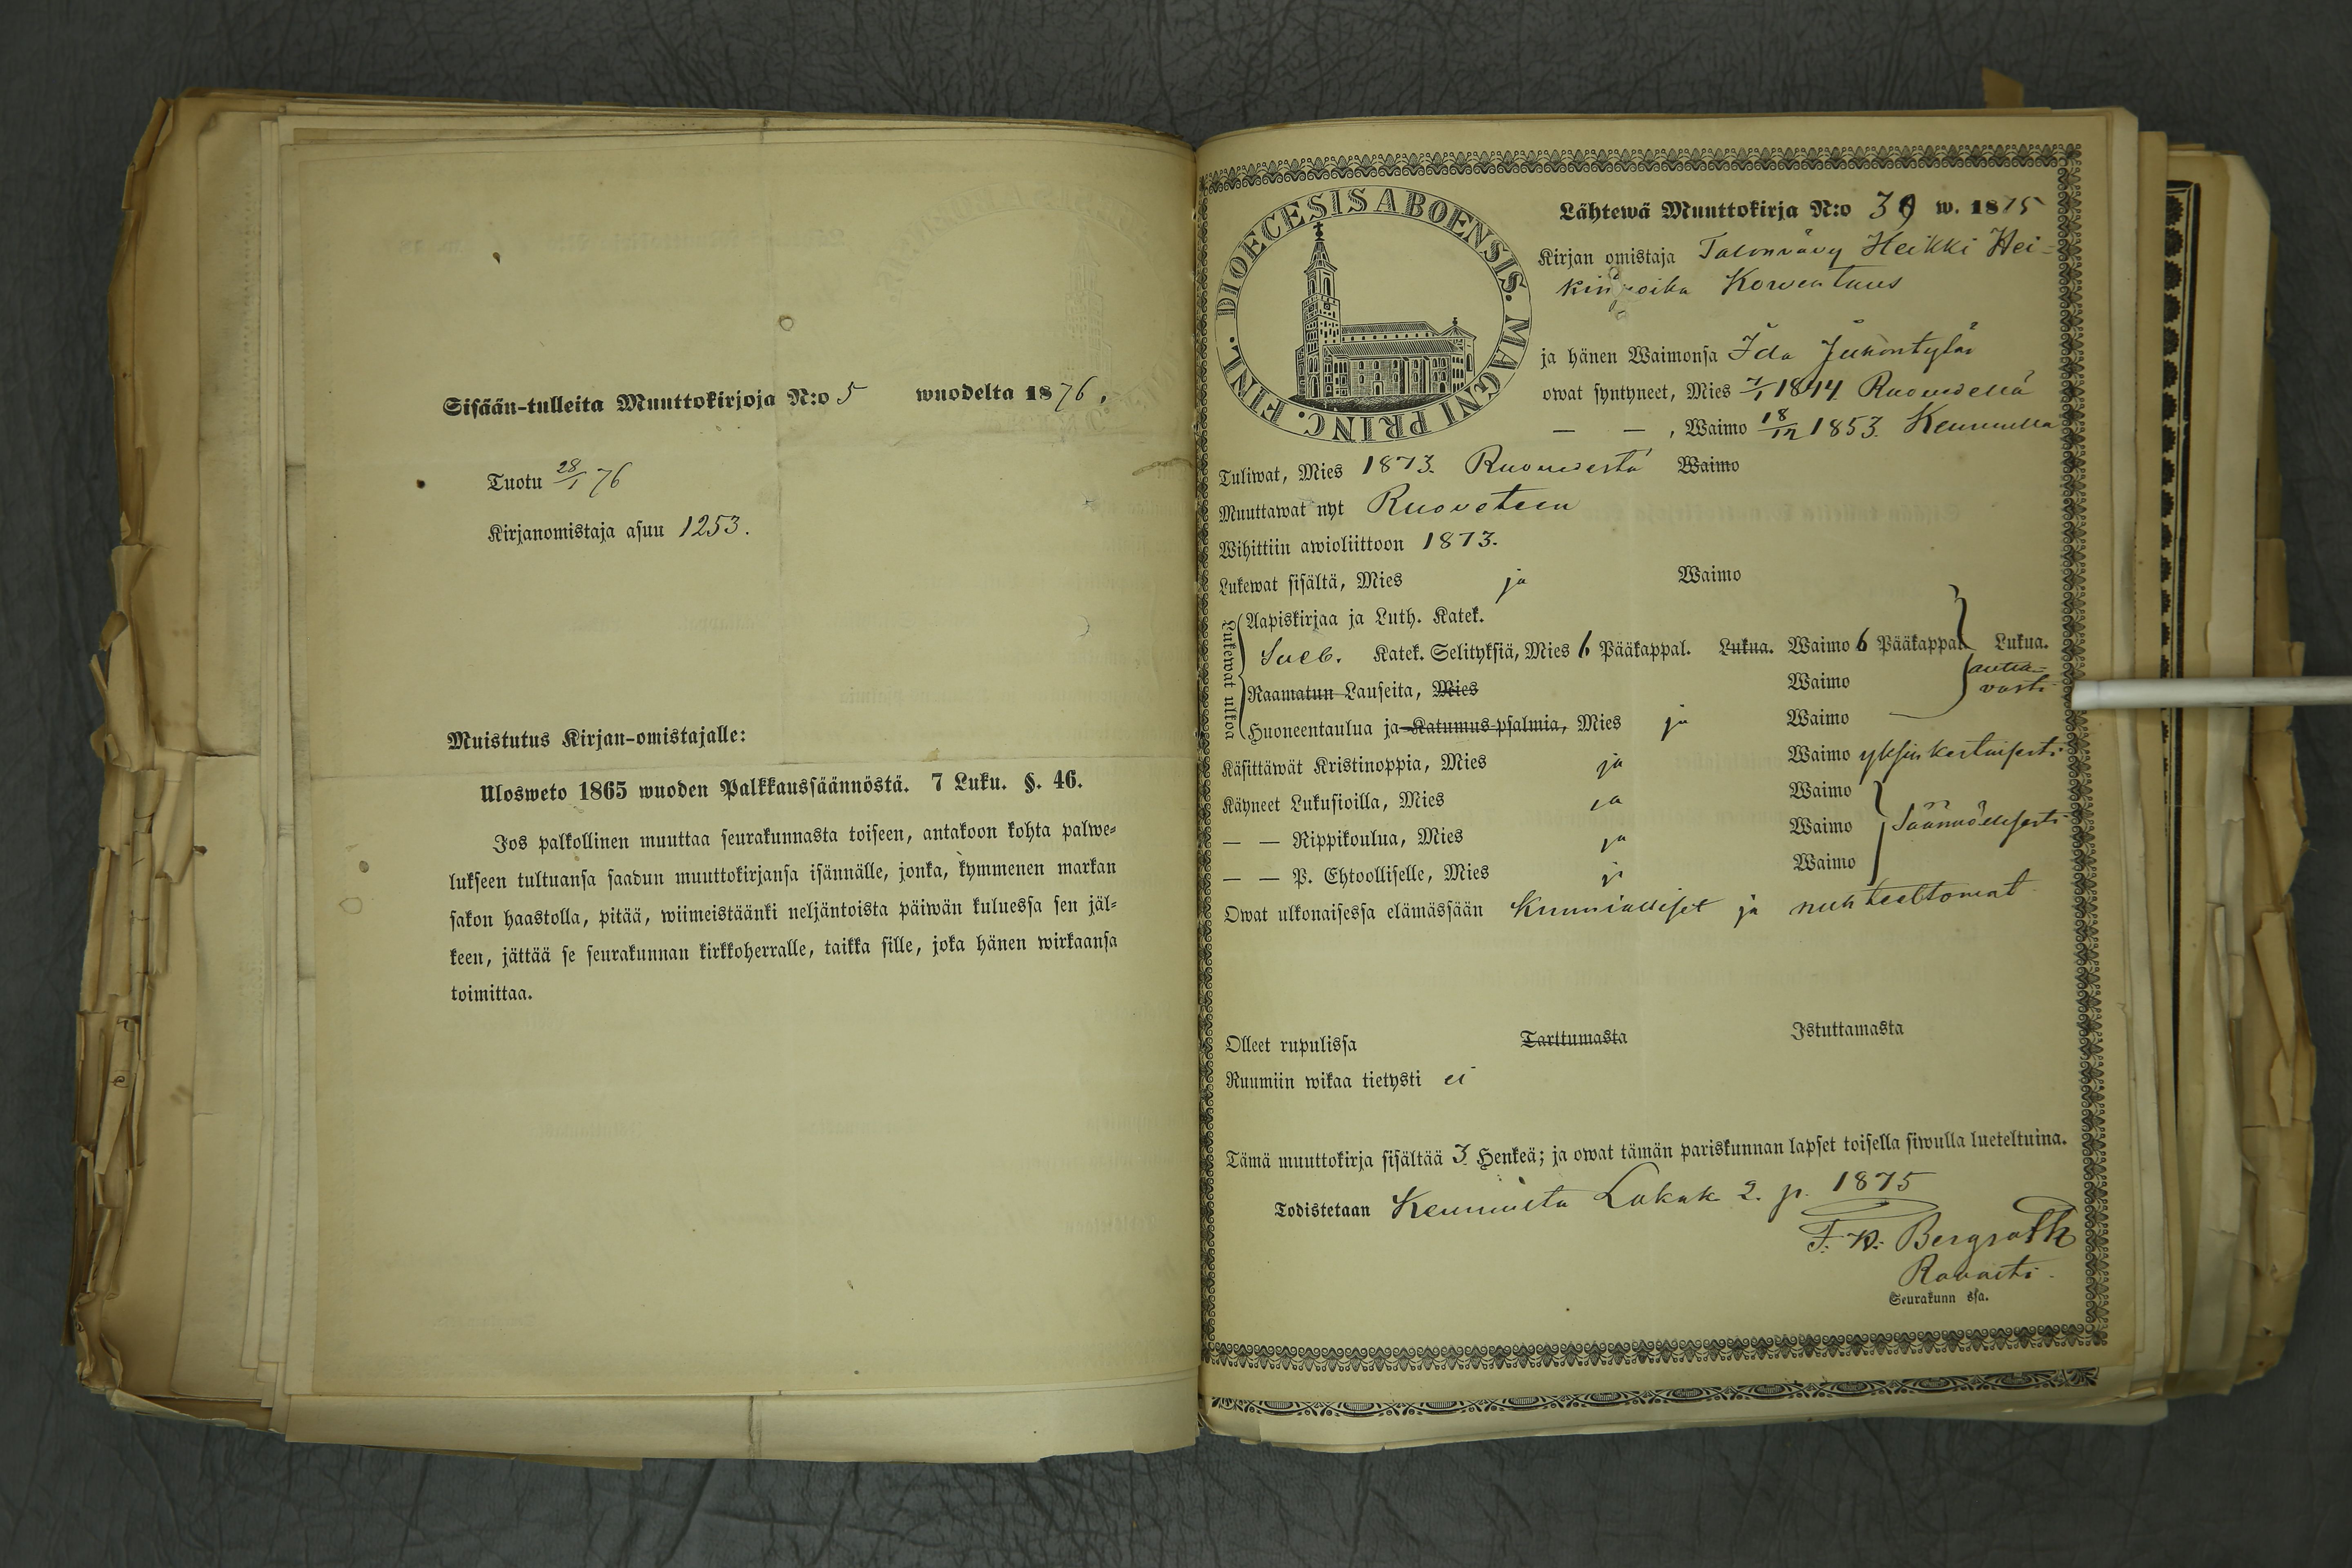 Sisään-tulleita Muuttokirjoja N:o 5 wuodelta 1876.
Tuotu 28/1 76
Kirjanomistaja asuu 1253.
Muistutus Kirjan-omistajalle:
Ulosweto 1865 wuoden Palkkaussäännöstä. 7 Luku. §. 46.
Jos palkollinen muuttaa seurakunnasta toiseen, antakoon kohta palwe=
lukseen tultuansa saadun muuttokirjansa isännälle, jonka, kymmenen markan
sakon haastolla, pitää, wiimeistäänki neljäntoista päiwän kuluessa sen jäl=
keen, jättää se seurakunnan kirkkoherralle, taikka sille, joka hänen wirkaansa
toimittaa.
DIOECESIS ABOENSIS. MAGNI PRINC. FINL.
Lähtewä Muuttokirja N:o 39 w. 1875
Kirjan omistaja Talonvävy Heikki Hei=
kinpoika Korventaus
ja hänen Waimonsa Ida
owat syntyneet, Mies 7/1 1844 Ruovedellä
— — , Waimo 18/12 1853. Keuruulla
Tuliwat, Mies 1873. Ruovedestä Waimo
Muuttawat nyt Ruoveteen
Wihittiin awioliittoon 1873.
Lukewat sisältä, Mies ja Waimo
Lukewat ulkoa
Aapiskirjaa ja Luth. Katek.
Sveb. Katek. Selityksiä, Mies 6 Pääkappal. Lukua. Waimo 6 Pääkappal Lukua.
Raamatun Lauseita, Mies Waimo auttavasti
Huoneentaulua ja Katumus-psalmia, Mies ja Waimo
Käsittäwät Kristinoppia, Mies ja Waimo yksinkertaisesti
Käyneet Lukusioilla, Mies ja Waimo
— — Rippikoulua, Mies ja Waimo säännöllisesti
— — P. Ehtoolliselle, Mies ja Waimo
Owat ulkonaisessa elämässään kunnialliset ja nuhteettomat
Olleet rupulissa Tarttumasta Istuttamasta
Ruumiin wikaa tietysti ei
Tämä muuttokirja sisältää 3 Henkeä; ja owat tämän pariskunnan lapset toisella siwulla lueteltuina.
Todistetaan Keuruulta Lokak 2. p. 1875
F. W. Bergroth
Rovasti.
Seurakunn ssa.